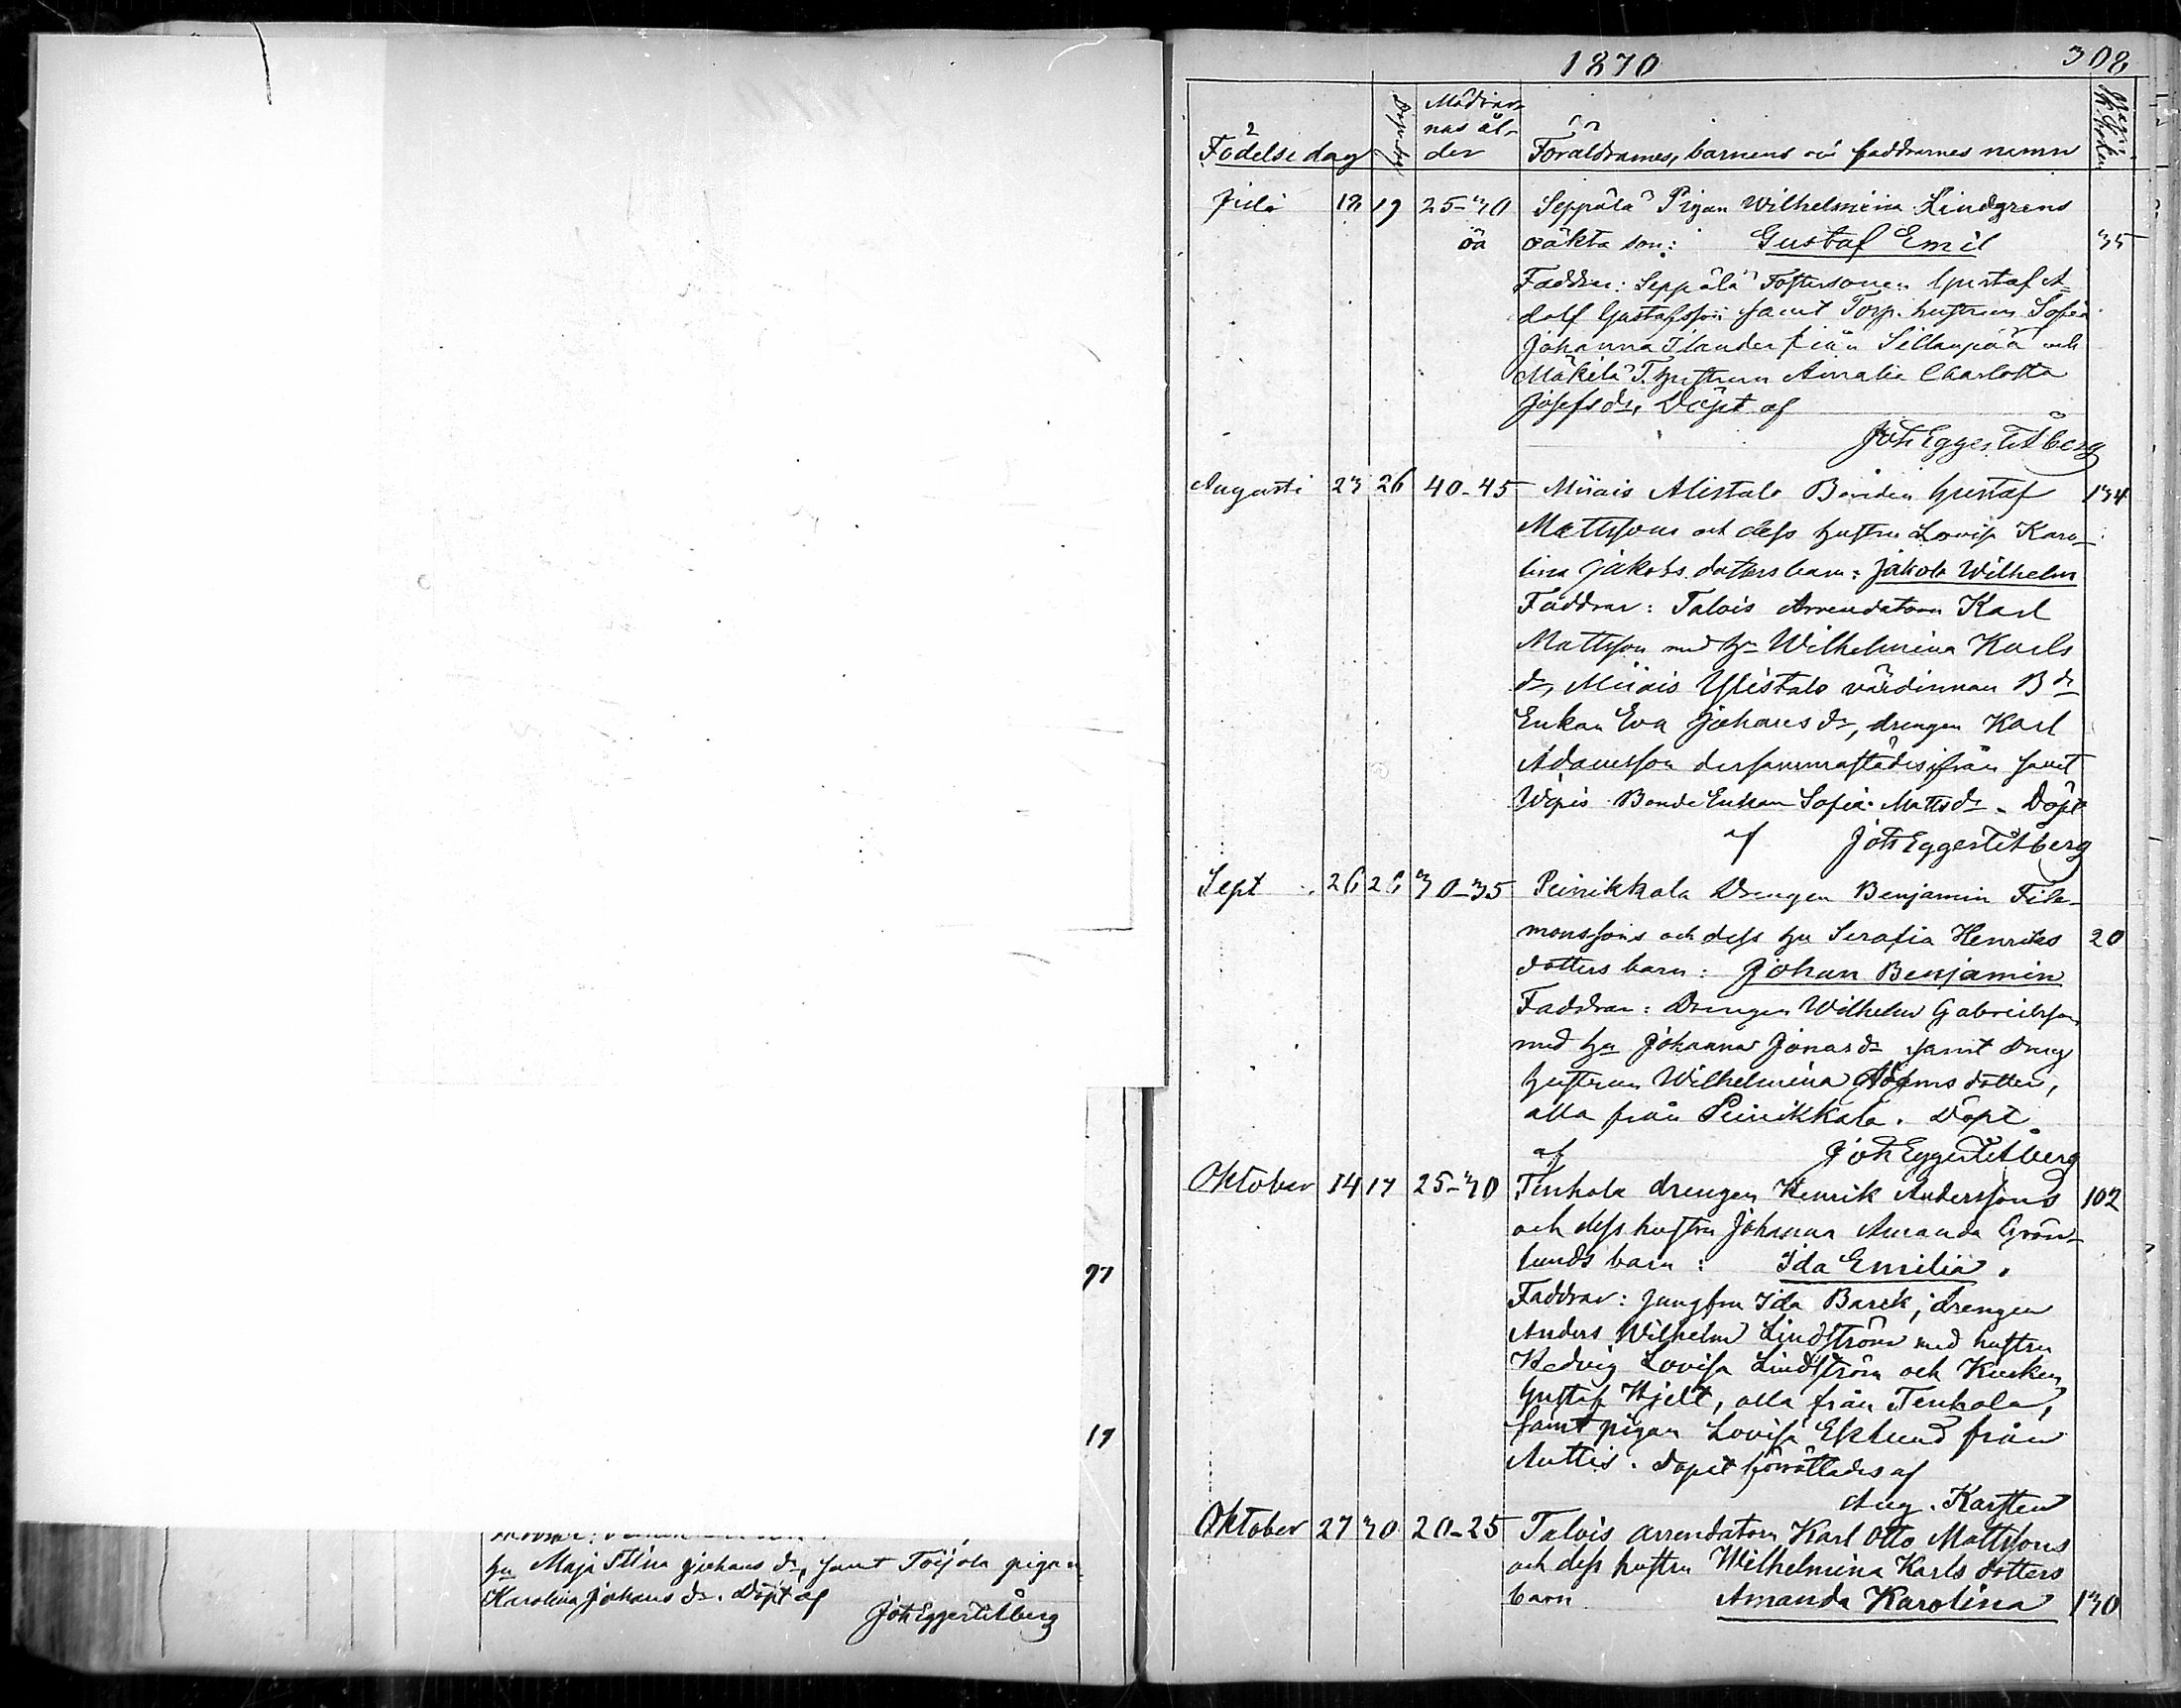 97
19
hu Maja Stina Johans dr, samt Toijola pigan
Karolina Johans dr. Döpt af
Joh Eggert Etberg
1870 308
Födelsedag Dopdag Mödrar-
nas ål-
der Föräldrarnes, barnens och faddrarnes namn
Juli 18 19 25-30 Seppälä Pigan Wilhelmina Lindgrens
oä oäkta son: Gustaf Emil 35
Faddrar: Seppälä Fostersonen Gustaf A-
dolf Gustafsson samt Torp. hustrun Sofia
Johanna Ilander från Sillanpää och
Mäkilä T. hustrun Amalia Charlotta
Josefs dr, Döpt af
Joh Eggert Etberg
Augusti 23 26 40-45 Miiais Alistalo Bonden Gustaf 134
Mattssons och dess hustru Lovisa Karo-
lina Jakobs dotters barn: Jakob Wilhelm
Faddrar: Talois Arrendatorn Karl
Mattsson med hu Wilhelmina Karls
dr, Miiais Ylistalo värdinnan B dr
Enkan Eva Johans dr, drengen Karl
Adamsson dersammastädes ifrån samt
Bonde Enkan Sofia Matts dr. Döpt
af Joh Eggert Etberg
Sept 26 26 30-35 Peinikkala Drengen Benjamin File-
monssons och dess hu Serafia Henriks 20
dotters barn: Johan Benjamin
Faddrar: Drengen Wilhelm Gabrielsson
med hu Johanna Jonas dr samt dreng
hustrun Wilhelmina Adams dotter,
alla från Peinikkala. Döpt
af Joh Eggert Etberg
Oktober 14 17 25-30 Tenhola drengen Henrik Anderssons 102
och dess hustru Johanna Amanda Grön-
lunds barn: Ida Emilia.
Faddrar: Jungfru Ida Barck, drengen
Anders Wilhelm Lindström med hustru
Hedvig Lovisa Lindström och Kusken
Gustaf Hjelt, alla från Tenhola,
samt pigan Lovisa Eklund från
Auttis. Dopet förrättades af
Aug. Karsten
Oktober 27 30 20-25 Talois arrendatorn Karl Otto Mattssons
och dess hustru Wilhelmina Karls dotters
barn Amanda Karolina 130